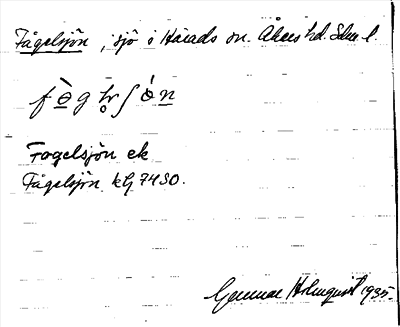 Fågelsjön, sjö i Härads sn. Åkers hd. Sdm l.
Fogelsjön ek
Fågelsjön kG 74 SO.
Gunnar Holmquist 1935.